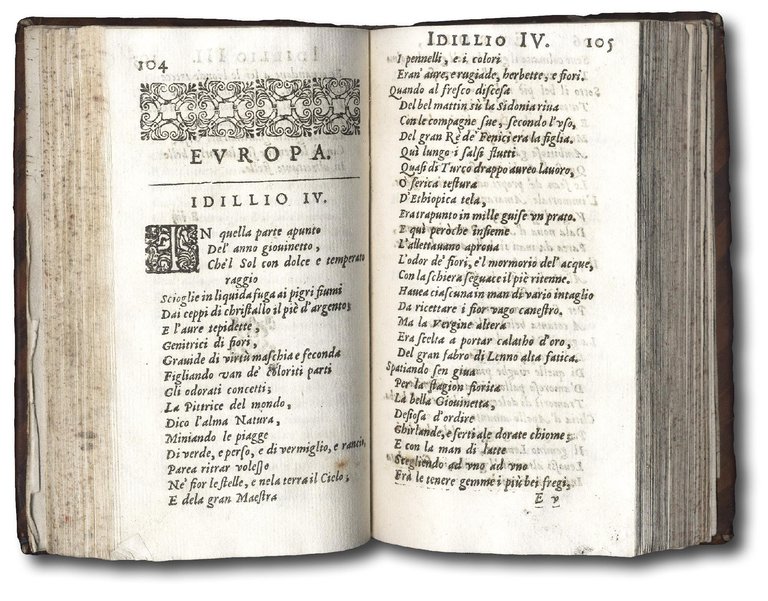 104
EVROPA.
IDILLIO IV.
IN quella parte apunto
Del' anno giouinetto,
Che'l Sol con dolce e temperato
raggio
Scioglie in liquida fuga ai pigri fiumi
Dai ceppi di christallo il piè d'argento;
E l'aure tepidette,
Genitrici di fiori,
Grauide di virtù maschia e feconda
Figliando van de' coloriti parti
Gli odorati concetti;
La Pittrice del mondo,
Dico l'alma Natura,
Miniando le piagge
Di verde, e perso, e di vermiglio, e rancio,
Parea ritrar volesse
Ne' fior le stelle, e nela terra il Cielo;
E dela gran Maestra
IDILLIO IV. 105
I pennelli, e i colori
Eran' aure, e rugiade, herbette, e fiori.
Quando al fresco discesa
Del bel mattin sù la Sidonia riua
Con le compagne sue, secondo l'vso,
Del gran Rè de' Fenici era la figlia.
Quì lungo i salsi flutti
Quasi di Turco drappo aureo lauoro,
O serica testura
D'Ethiopica tela,
Era trapunto in mille guise vn prato.
E quì peroche insieme
L'allettauano aproua
L'odor de' fiori, e'l mormorio del' acque,
Con la schiera seguace il piè ritenne.
Hauea ciascuna in man di vario intaglio
Da ricettare i fior vago canestro.
Ma la Vergine altera
Era scelta a portar calatho d'oro,
Del gran fabro di Lenno alta fatica.
Spatiando sen giua
Per la stagion fiorita
La bella Giouinetta,
Desiosa d'ordire
Ghirlande, e serti ale dorate chiome;
E con la man di latte
Scegliendo ad vno ad vno
Frà le tenere gemme i più bei fregi,
E v